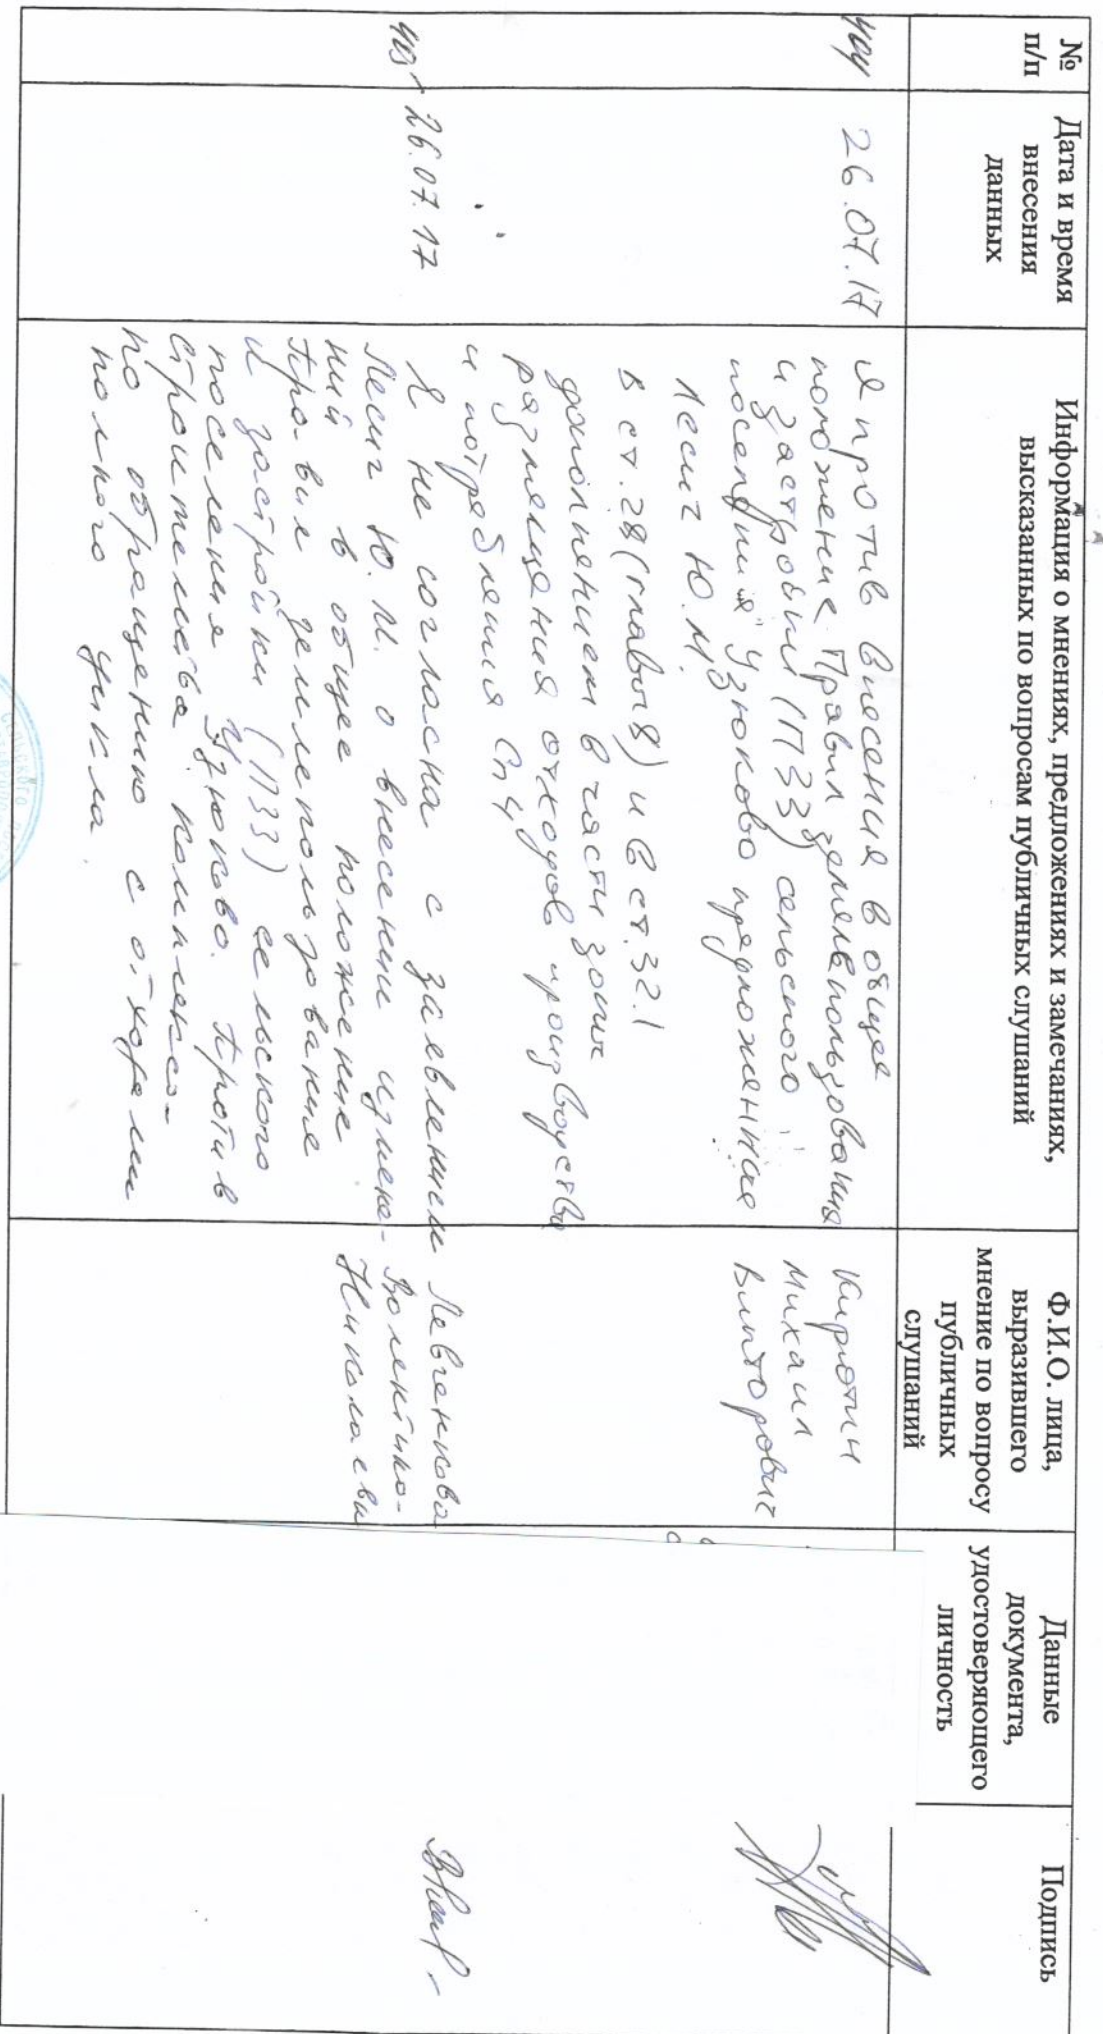 №
п/п
Дата и время
внесения
данных
Информация о мнениях, предложениях и замечаниях,
высказанных по вопросам публичных слушаний
Ф.И.О. лица,
выразившего
мнение по вопросу
публичных
слушаний
Данные
документа,
удостоверяющего
личность
Подпись
404
26.07.17
Я против внесения в общее
положение Правил землепользования
и застройки (ПЗЗ) сельского
поселения Узюково предложенные
Лесиг Ю.М.
в ст.28 (глава 8) и в ст.32.1
дополнением в части зоны
размещения отходов производства
и потребления Сп4
Киротин
Михаил
Викторович
405
26.07.17
Я не согласна с заявлением
Лесиг Ю.М. о внесении измене-
ний в общее положение
правил землепользование
и застройки (ПЗЗ) сельского
поселения Узюково. Против
строительства комплекса
по обращению с отходами
полного цикла.
Левченкова
Валентина
Николаевна